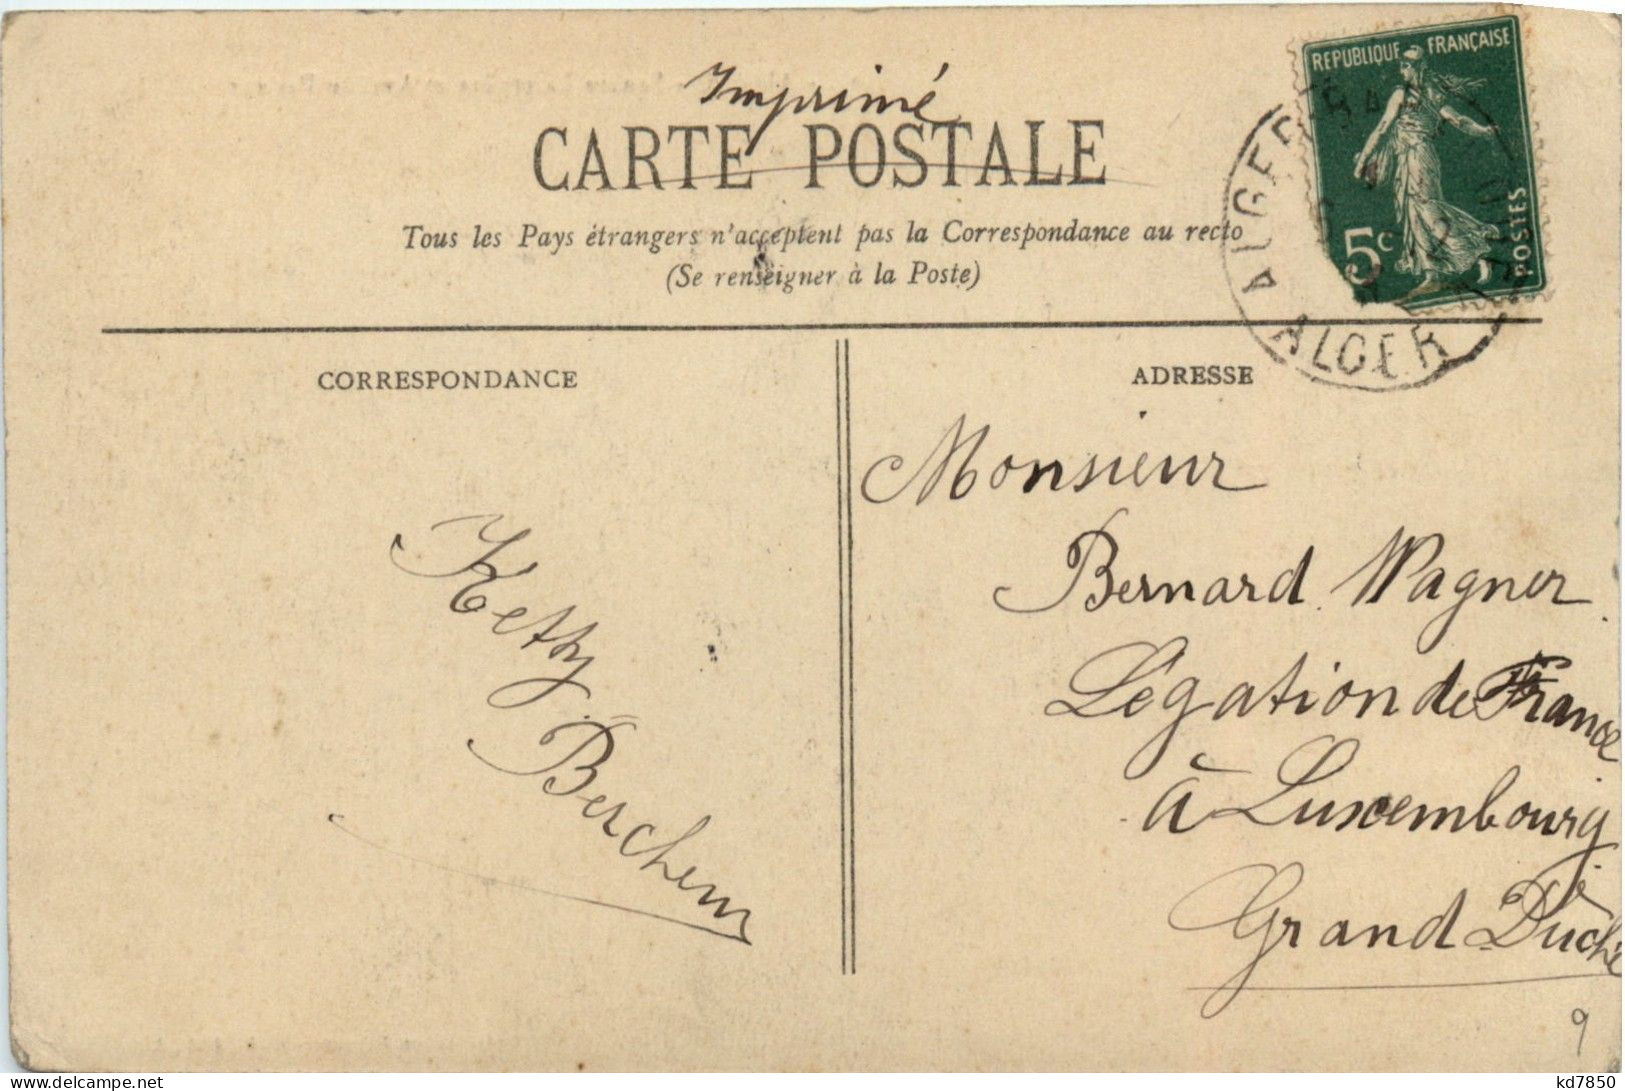 Imprimé
CARTE POSTALE
Tous les Pays étrangers n'acceptent pas la Correspondance au recto
(Se renseigner à la Poste)
REPUBLIQUE FRANÇAISE
5c
POSTES
ALGER
ALGER
CORRESPONDANCE
ADRESSE
Ketty
Berchem
Monsieur
Bernard Wagner
Légation de France
à Luxembourg
Grand-Duché
9
kd7850